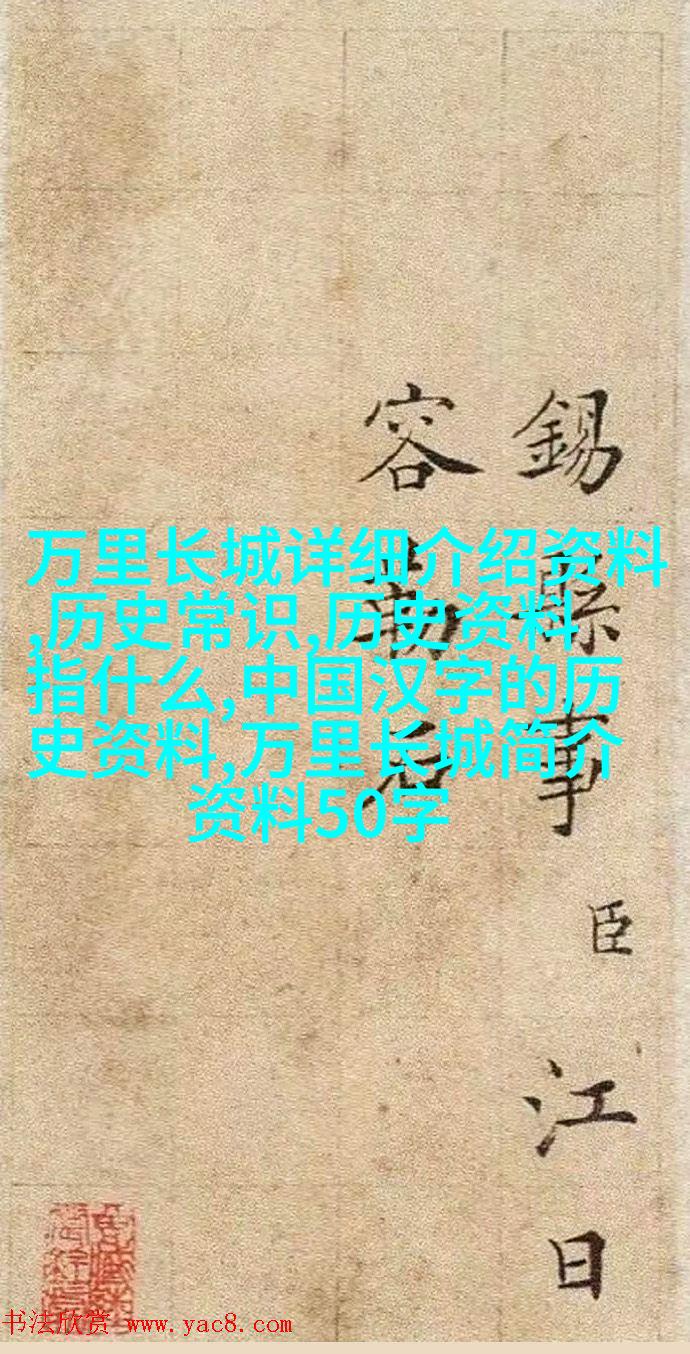 万里长城详细介绍资料
,历史常识,历史资料
指什么,中国汉字的历
史资料,万里长城简介
资料50字
錫縣事臣江日
容勒石
书法欣赏 www.yac8.com